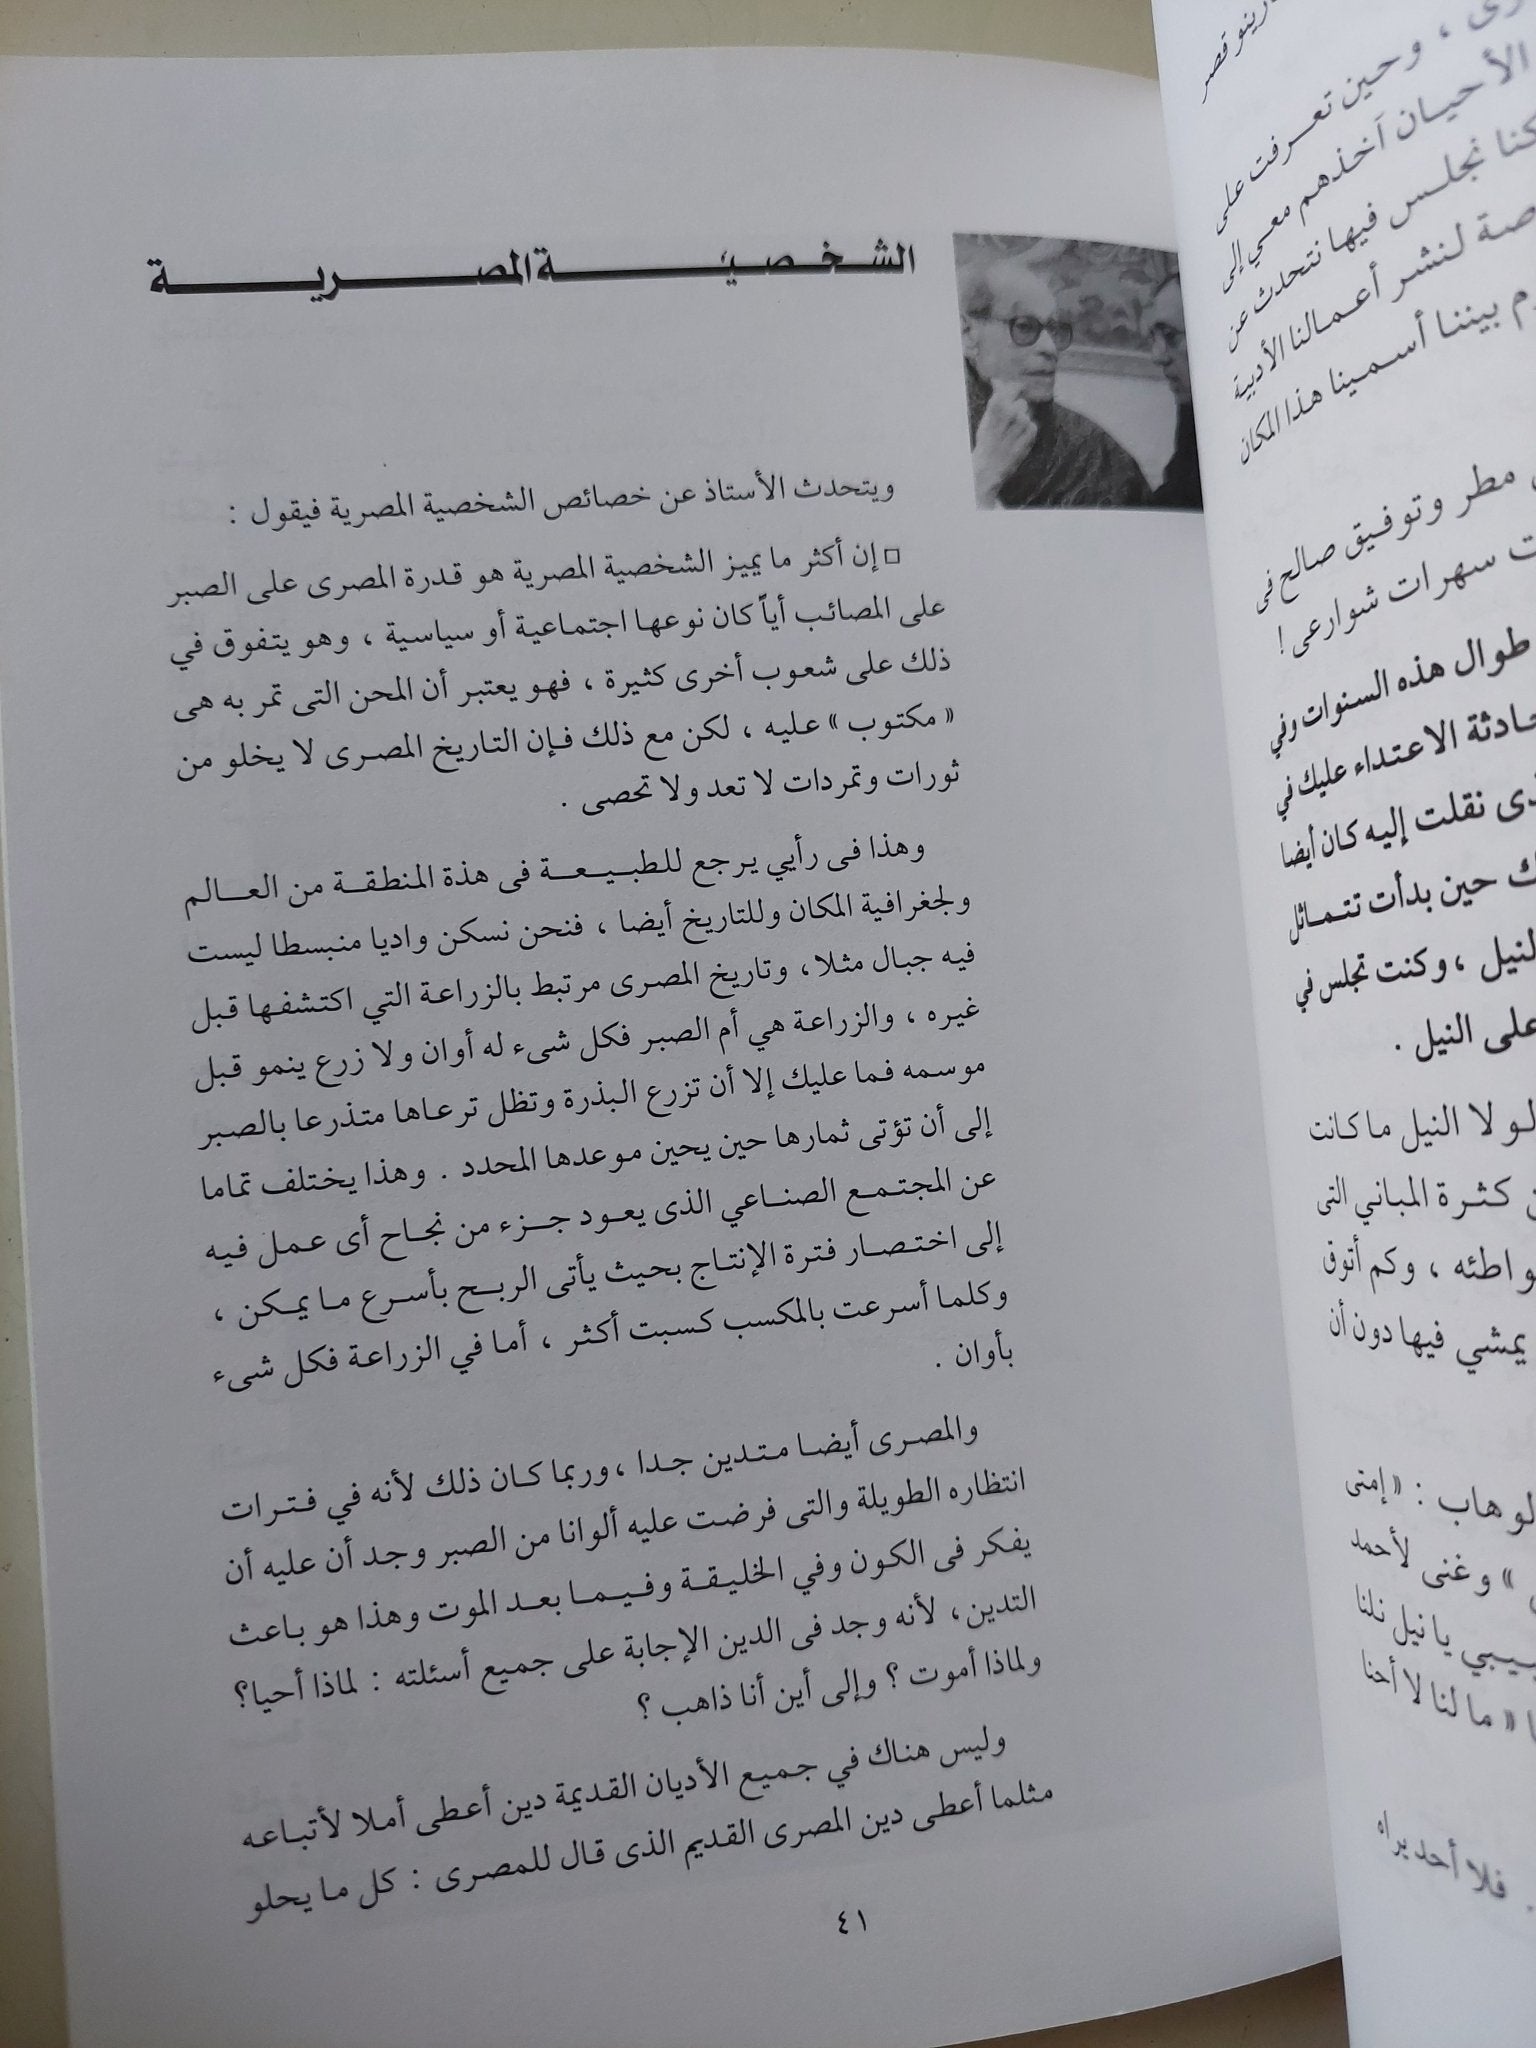 الشخصية المصرية
ويتحدث الأستاذ عن خصائص الشخصية المصرية فيقول :
□ إن أكثر ما يميز الشخصية المصرية هو قدرة المصرى على الصبر
على المصائب أياً كان نوعها اجتماعية أو سياسية ، وهو يتفوق في
ذلك على شعوب أخرى كثيرة ، فهو يعتبر أن المحن التى تمر به هى
« مكتوب » عليه ، لكن مع ذلك فإن التاريخ المصرى لا يخلو من
ثورات وتمردات لا تعد ولا تحصى .
وهذا فى رأيي يرجع للطبيعة فى هذة المنطقة من العالم
ولجغرافية المكان وللتاريخ أيضا ، فنحن نسكن واديا منبسطا ليست
فيه جبال مثلا، وتاريخ المصرى مرتبط بالزراعة التي اكتشفها قبل
غيره ، والزراعة هي أم الصبر فكل شىء له أوان ولا زرع ينمو قبل
موسمه فما عليك إلا أن تزرع البذرة وتظل ترعاها متذرعا بالصبر
إلى أن تؤتى ثمارها حين يحين موعدها المحدد . وهذا يختلف تماما
عن المجتمع الصناعي الذى يعود جزء من نجاح أى عمل فيه
إلى اختصار فترة الإنتاج بحيث يأتى الربح بأسرع ما يمكن ،
وكلما أسرعت بالمكسب كسبت أكثر ، أما في الزراعة فكل شىء
بأوان .
والمصرى أيضا متدين جدا ، وربما كان ذلك لأنه في فترات
انتظاره الطويلة والتى فرضت عليه ألوانا من الصبر وجد أن عليه أن
يفكر فى الكون وفي الخليقة وفيما بعد الموت وهذا هو باعث
التدين، لأنه وجد فى الدين الإجابة على جميع أسئلته : لماذا أحيا؟
ولماذا أموت ؟ وإلى أين أنا ذاهب ؟
وليس هناك في جميع الأديان القديمة دين أعطى أملا لأتباعه
مثلما أعطى دين المصرى القديم الذى قال للمصرى : كل ما يحلو
٤١
وحين تعرفت على
الأحيان آخذهم معي إلى
كنا نجلس فيها نتحدث عن
لنشر أعمالنا الأدبية
بيننا أسمينا هذا المكان
مطر وتوفيق صالح فى
سهرات شوارعى !
طوال هذه السنوات وفي
الاعتداء عليك في
نقلت إليه كان أيضا
حين بدأت تتماثل
النيل ، وكنت تجلس في
على النيل .
لولا النيل ما كانت
كثرة المباني التى
وكم أتوق
يمشي فيها دون أن
: « إمتى
» وغنى لأحمد
يا نيل نلنا
« ما لنا لا أحنا
فلا أحد يراه